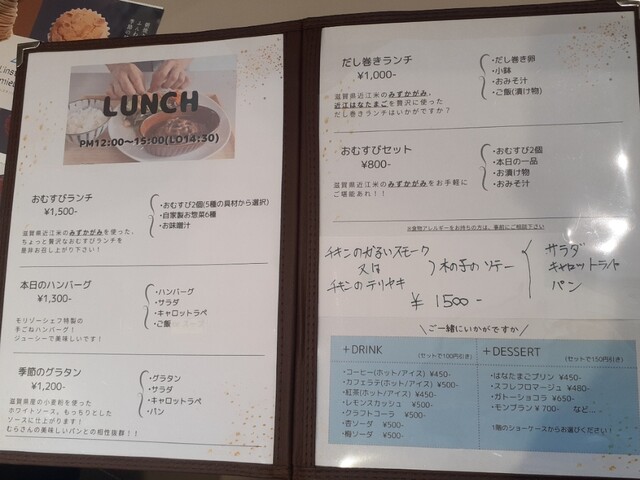 LUNCH
PM12:00〜15:00(LO14:30)
おむすびランチ
¥1,500-
・おむすび2個(5種の具材から選択)
・自家製お惣菜6種
・お味噌汁
滋賀県近江米のみずかがみを使った、
ちょっと贅沢なおむすびランチを
是非お召し上がり下さい!
本日のハンバーグ
¥1,300-
・ハンバーグ
・サラダ
・キャロットラペ
・ご飯
モリゾーシェフ特製の
手ごねハンバーグ!
ジューシーで美味しいです!
季節のグラタン
¥1,200-
・グラタン
・サラダ
・キャロットラペ
・パン
滋賀県産の小麦粉を使った
ホワイトソース。もっちりとした
ソースに仕上がります!
むらさんの美味しいパンとの相性抜群!!
だし巻きランチ
¥1,000-
・だし巻き卵
・小鉢
・おみそ汁
・ご飯(漬け物)
滋賀県近江米のみずかがみ、
近江はなたまごを贅沢に使った
だし巻きランチはいかがですか?
おむすびセット
¥800-
・おむすび2個
・本日の一品
・お漬け物
・おみそ汁
滋賀県近江米のみずかがみをお手軽に
ご堪能あれ!!
※食物アレルギーをお持ちの方は、事前にご相談下さい
チキンの
スモーク
又は
チキンのテリヤキ
木の子のソテー
¥1500-
サラダ
キャロットラペ
パン
\ ご一緒にいかがですか /
+DRINK (セットで100円引き)
・コーヒー(ホット/アイス) ¥450-
・カフェラテ(ホット/アイス) ¥500-
・紅茶(ホット/アイス) ¥450-
・レモンスカッシュ ¥500-
・クラフトコーラ ¥500-
・杏ソーダ ¥500-
・梅ソーダ ¥500-
+DESSERT (セットで150円引き)
・はなたまごプリン ¥450-
・スフレフロマージュ ¥480-
・ガトーショコラ ¥650-
・モンブラン ¥700- など
1階のショーケースからお選びください!